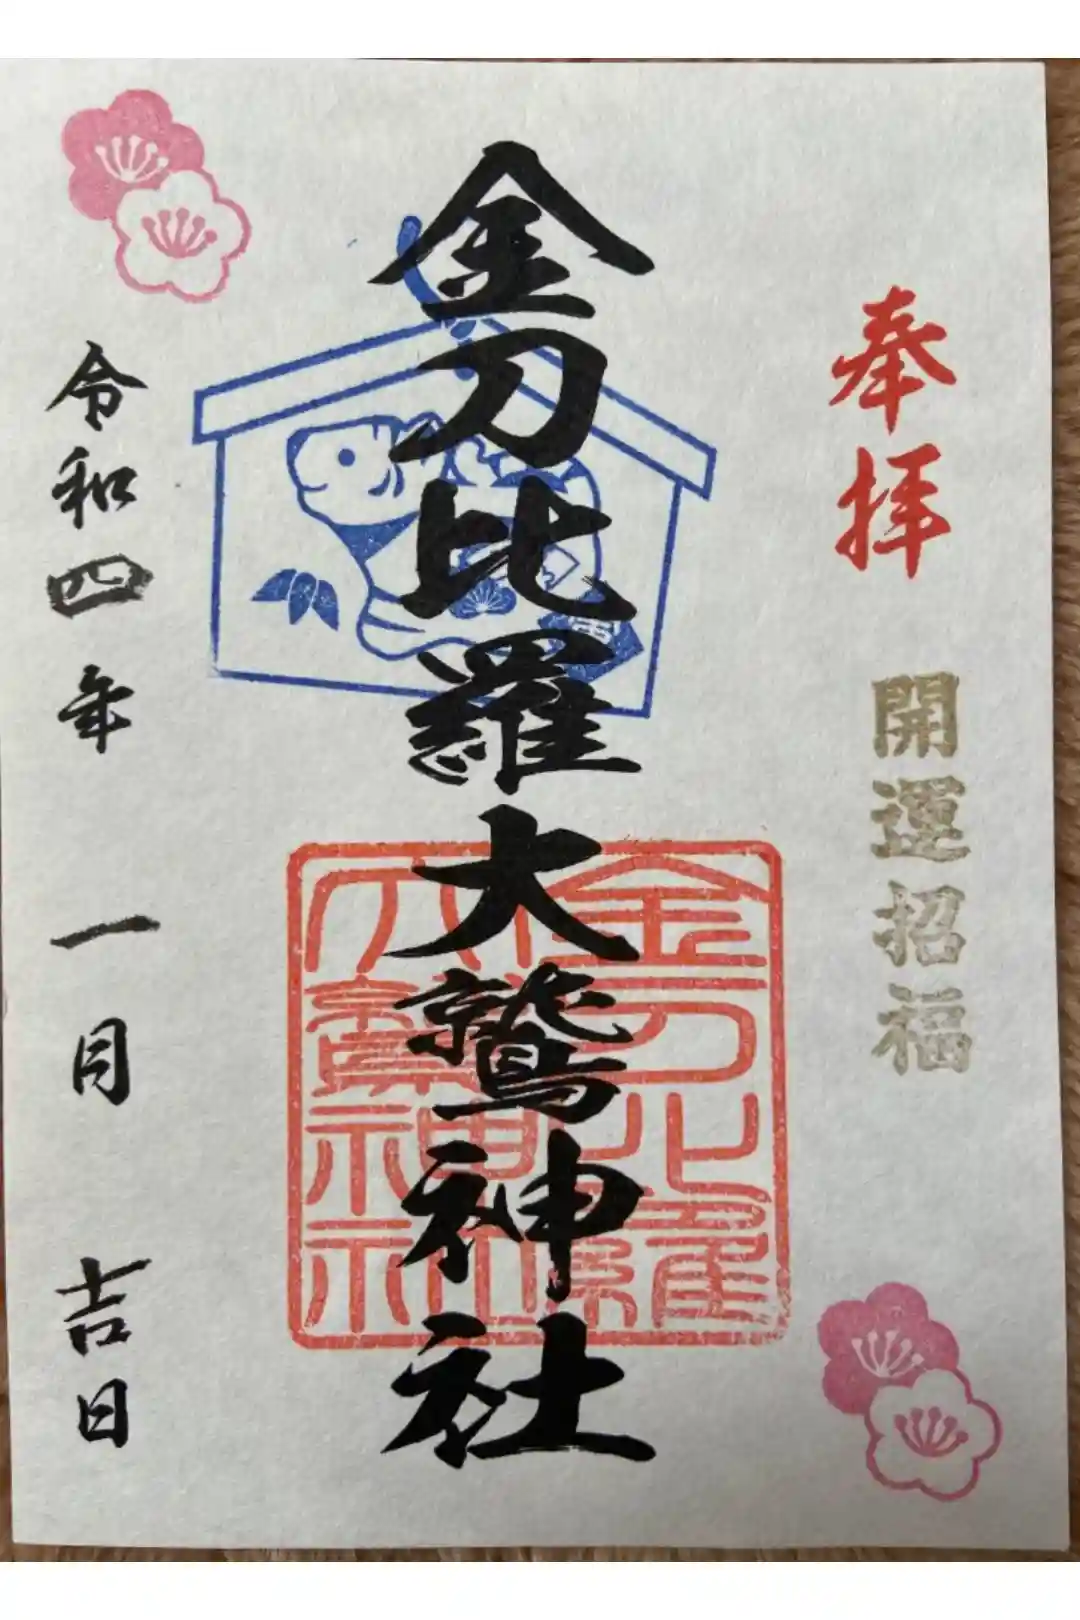 奉拝
開運招福
金刀比羅大鷲神社
金刀比羅
大鷲神社
令和四年 一月 吉日